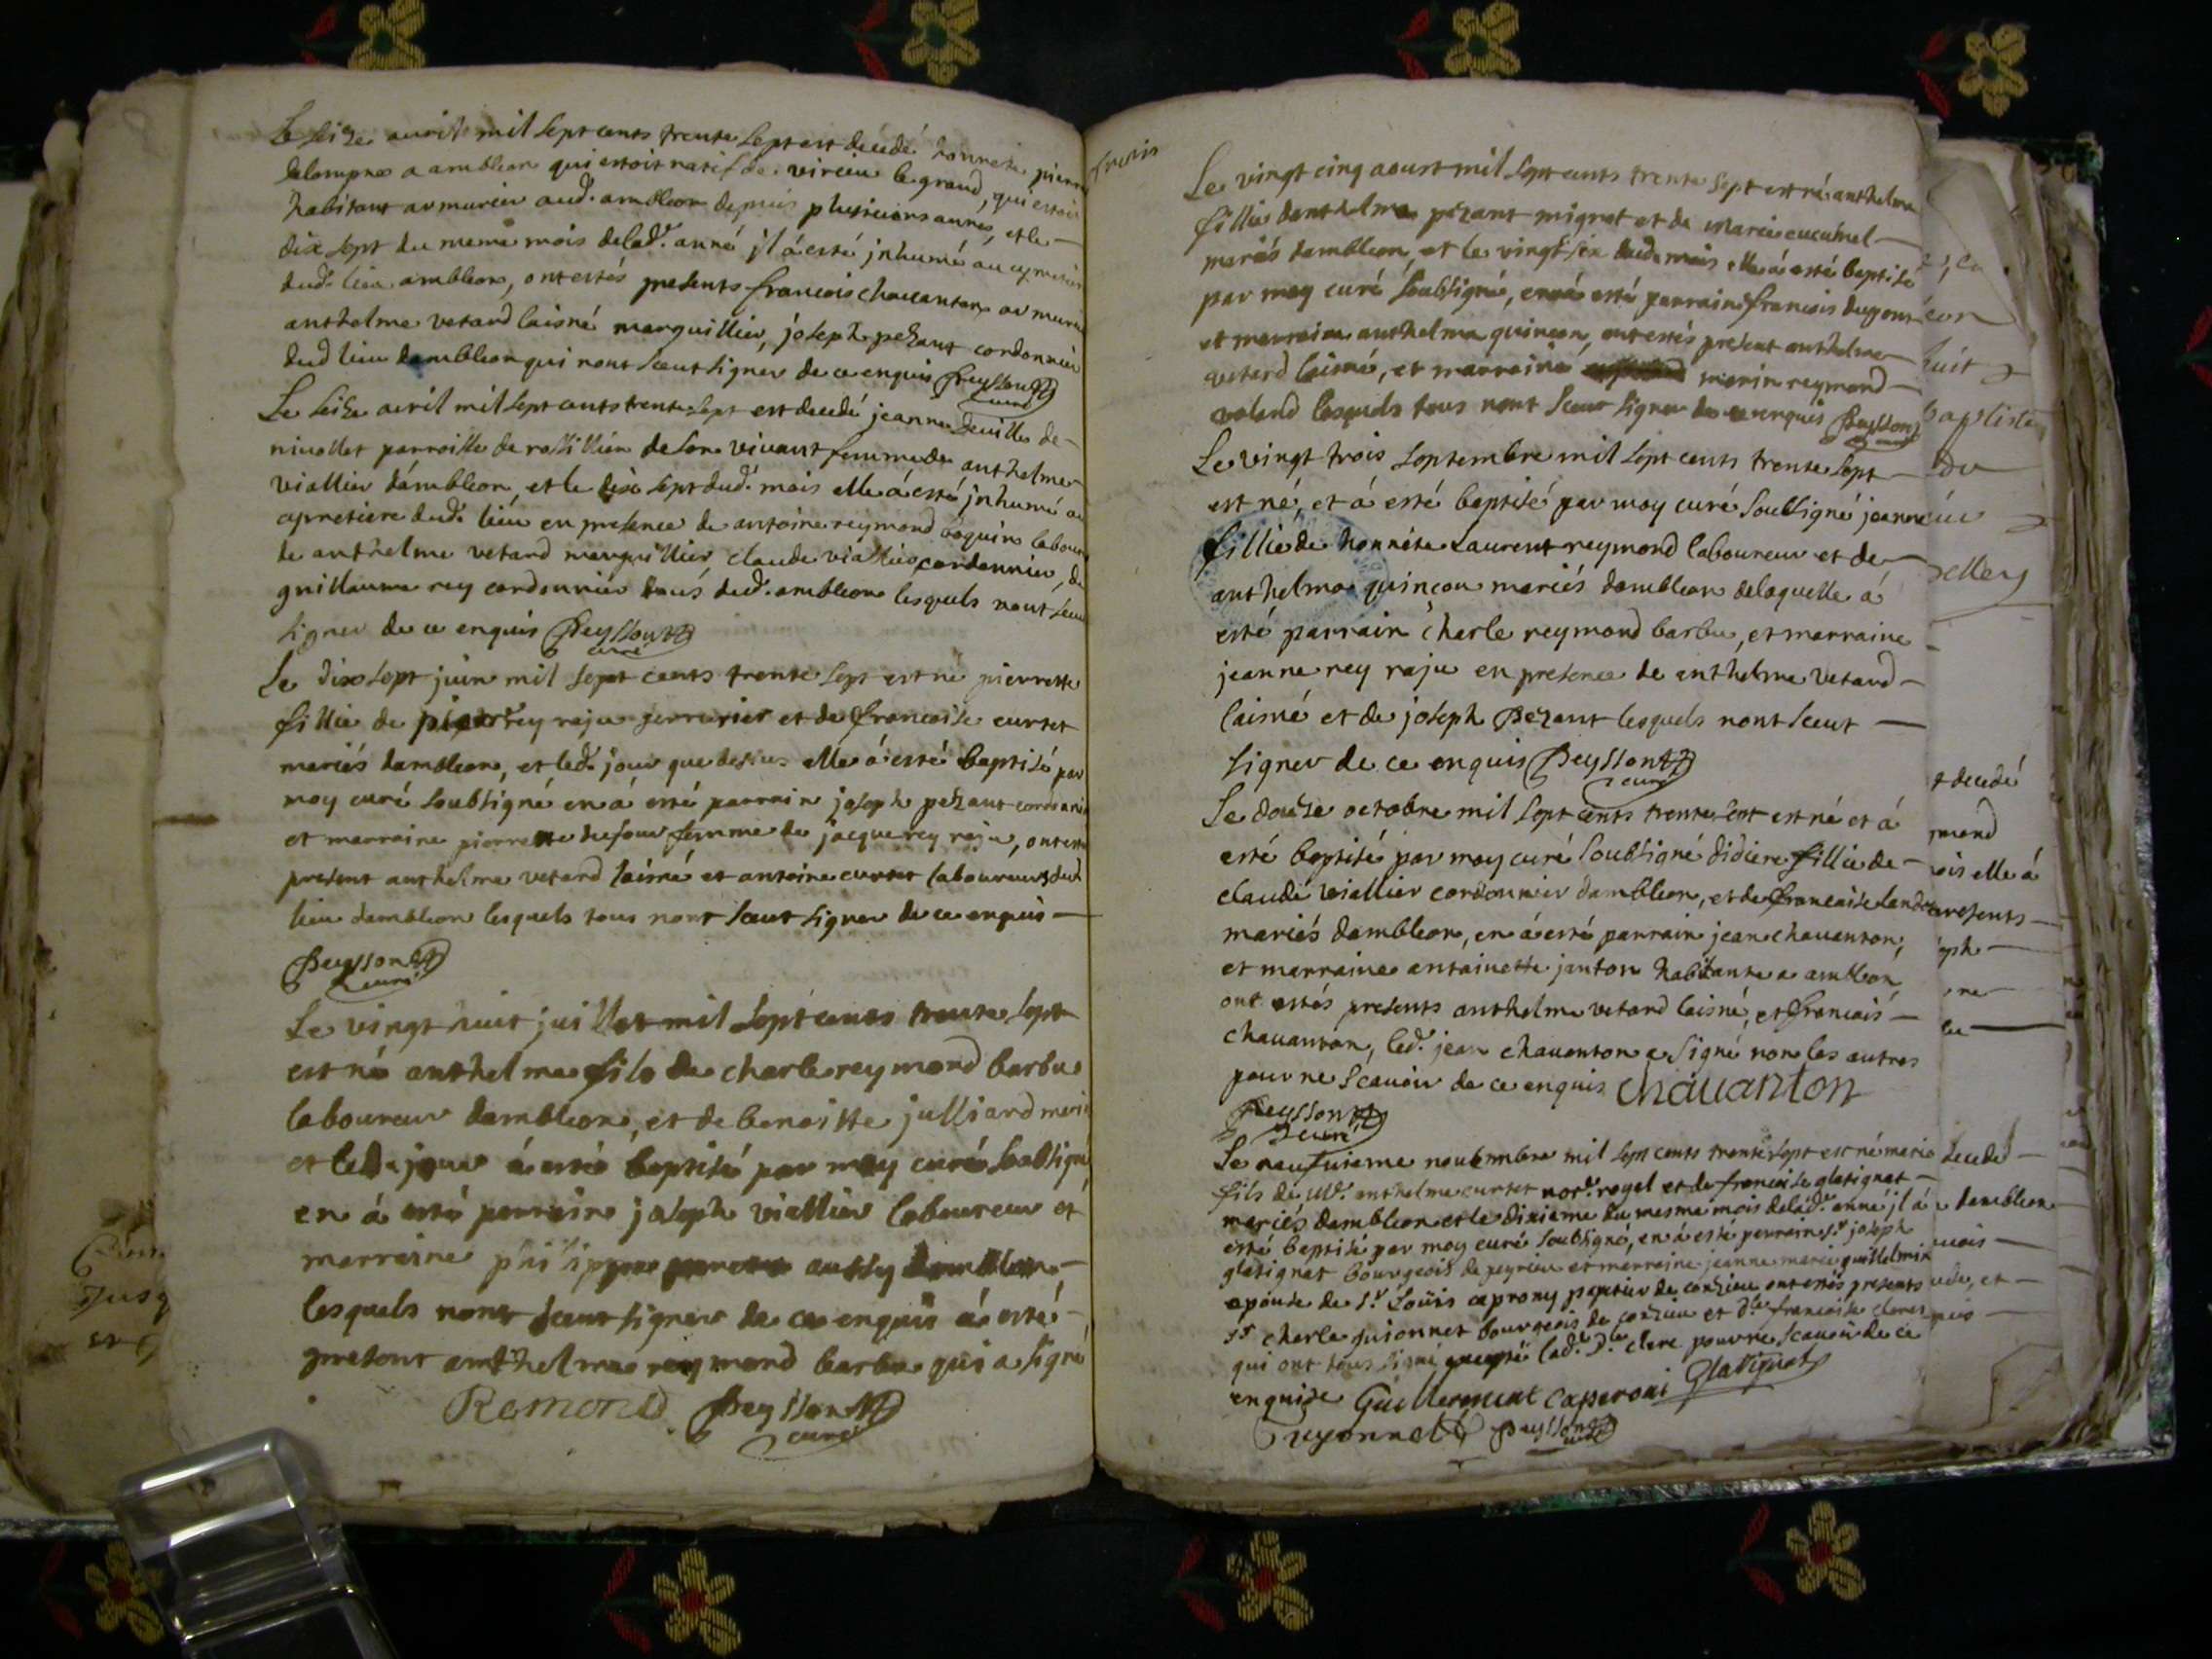 Le seize avril mil sept cents trente sept est decedé honneste pierre
delompnes a ambleon qui estoit natif de virieu le grand, qui estoit
habitant armurier aud. ambleon depuis plusieurs annes, et le
dix sept du meme mois de lad. anné jl á esté jnhumé au cymetier
dud. lieu ambleon, ont estés presents francois chavanton armurier
anthelme vetard laisné marguillier, joseph pezant cordonnier
dud lieu dambleon qui nont sceut signer de ce enquis Peysson
curé
Le seize avril mil sept cents trente sept est decedé jeanne deville de
nivollet parroisse de rossillion de son vivant femme de anthelme
viallier dámbleon, et le dix sept dud. mois elle á esté jnhumé au
cymetiere dud. lieu en presence de antoine reymond coquin labour
de anthelme vetard marguillier claude viallier cordonnier, de
guillaume rey cordonnier tous dud. ambleon lesquels nont sceu
signer de ce enquis Peysson
curé
Le dix sept juin mil sept cents trente sept est né pierrette
fillie de pierre rey raju serrurier et de francoise curtet
mariés dambleon, et led. jour que dessus elle á esté baptisé par
moy curé soubsigné en á esté parrain joseph pezant cordonnier
et marraine pierrette dufour femme de jacque rey raju, ont esté
present anthelme vetard laisné et antoine curtet laboureurs dud
lieu dambleon lesquels tous nont sceut signer de ce enquis
Peysson
curé
Le vingt huit juillet mil sept cents trente sept
est né anthelme fils de charle reymond barbu
laboureur dambleon, et de benoitte julliard marié
et led. jour á esté baptisé par moy curé soubsigné
en á esté parrain joseph viallier laboureur et
marraine philippe aussy dambleon
lesquels nont sceut signer de ce enquis á esté
present anthelme reymond barbu qui a signé
Remond Peysson
curé
Le vingt cinq aoust mil sept cents trente sept est né anthelma
fillie danthelme pezant mignot et de marie
mariés dambleon, et le vingt six dud. mois elle á esté baptisé
par moy curé soubsigné, en á esté parrain francois dupont
et marraine anthelma quinçon, ont estés present anthelme
vetard laisné, et marraine marin reymond
voland lesquels tous nont sceut signer de ce enquis Peysson
curé
Le vingt trois septembre mil sept cents trente sept
est né, et á esté baptisé par moy curé soubsigné jeanne
fillie de honnete Laurent reymond laboureur et de
anthelma quinçon mariés dambleon de laquelle á
esté parrain charle reymond barbu, et marraine
jeanne rey raju en presence de anthelme vetard
laisné et de joseph pezant lesquels nont sceut
signer de ce enquis Peysson
curé
Le douze octobre mil sept cents trente sept est né et á
esté baptisé par moy curé soubsigné didiere fillie de
claude viallier cordonnier dambleon, et de francoise
mariés dambleon, en á esté parrain jean chavanton,
et marraine antoinette janton habitante a ambleon,
ont estés presents anthelme vetard laisné, et francois
chavanton, led. jean chavanton a signé non les autres
pour ne scavoir de ce enquis chavanton
Peysson
curé
Le neufvieme novembre mil sept cents trente sept est né marie
fils de Me. anthelme curtet nore. royal et de francoise glatignat
mariés dambleon et le dixiame du mesme mois de lad. anné jl á
esté baptisé par moy curé soubsigné, en á esté parrain sr. joseph
glatignat bourgeois de peyrieu et marraine jeanne marie guillelmin
epouse de sr. Loüis caprony papetier de conzieu ont estés presents
sr charle guionnet bourgeois de conzieu et dlle francoise clere
qui ont tous signé excepté lad. dlle. clere pour ne scavoir de ce
enquise Guillermint Casperoni Glatignat
Guyonnet Peysson
curé
huit
baptisé
t decedé
mond
ois elle á
presents
eph
decedé
dambleon
mois